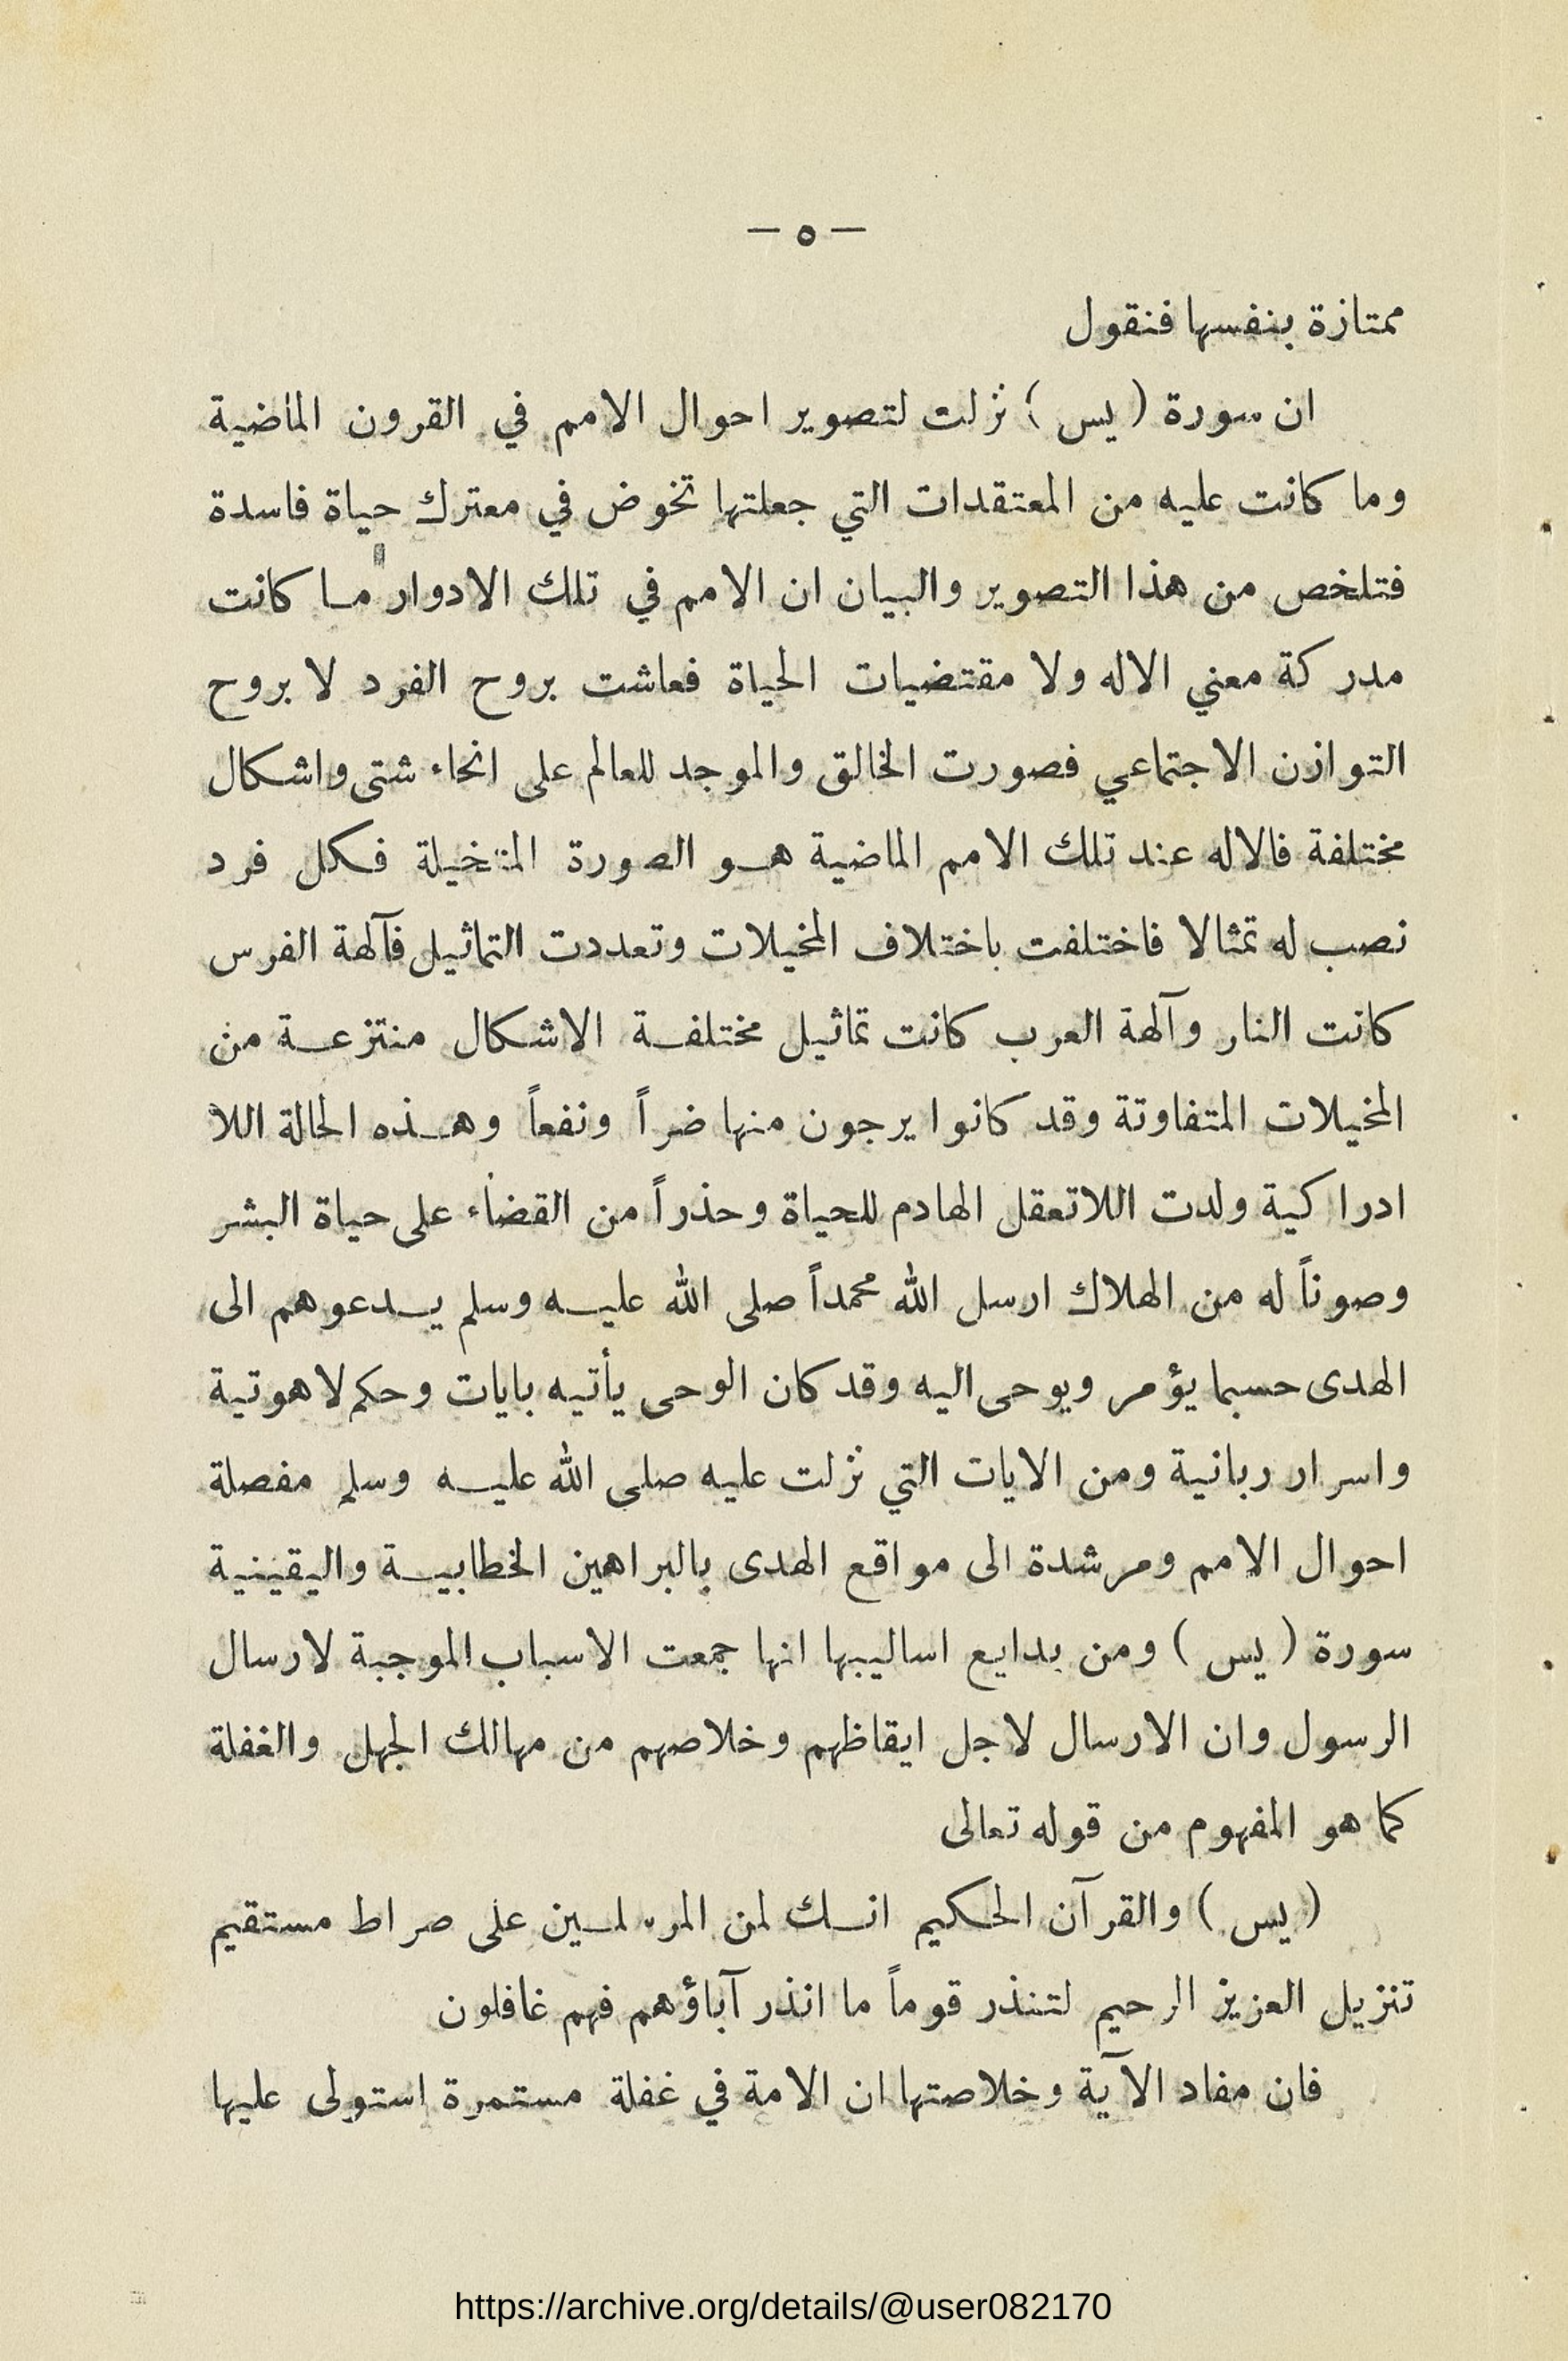 — ٥ —
ممتازة بنفسها فنقول
ان سورة ( يس ) نزلت لتصوير احوال الامم في القرون الماضية
وما كانت عليه من المعتقدات التي جعلتها تخوض في معترك حياة فاسدة
فتلخص من هذا التصوير والبيان ان الامم في تلك الادوار ما كانت
مدركة معني الاله ولا مقتضيات الحياة فعاشت بروح الفرد لا بروح
التوازن الاجتماعي فصورت الخالق والموجد للعالم على انحاء شتى واشكال
مختلفة فالاله عند تلك الامم الماضية هو الصورة المتخيلة فكل فرد
نصب له تمثالا فاختلفت باختلاف المخيلات وتعددت التماثيل فآلهة الفرس
كانت النار وآلهة العرب كانت تماثيل مختلفة الاشكال منتزعة من
المخيلات المتفاوتة وقد كانوا يرجون منها ضراً ونفعاً وهذه الحالة اللا
ادراكية ولدت اللاتعقل الهادم للحياة وحذراً من القضاء على حياة البشر
وصوناً له من الهلاك ارسل الله محمداً صلى الله عليه وسلم يدعوهم الى
الهدى حسبما يؤمر ويوحى اليه وقد كان الوحى يأتيه بايات وحكم لاهوتية
واسرار ربانية ومن الايات التي نزلت عليه صلى الله عليه وسلم مفصلة
احوال الامم ومرشدة الى مواقع الهدى بالبراهين الخطابية واليقينية
سورة ( يس ) ومن بدايع اساليبها انها جمعت الاسباب الموجبة لارسال
الرسول وان الارسال لاجل ايقاظهم وخلاصهم من مهالك الجهل والغفلة
كما هو المفهوم من قوله تعالى
( يس ) والقرآن الحكيم انك لمن المرسلين على صراط مستقيم
تنزيل العزيز الرحيم لتنذر قوماً ما انذر آباؤهم فهم غافلون
فان مفاد الآية وخلاصتها ان الامة في غفلة مستمرة استولى عليها
https://archive.org/details/@user082170